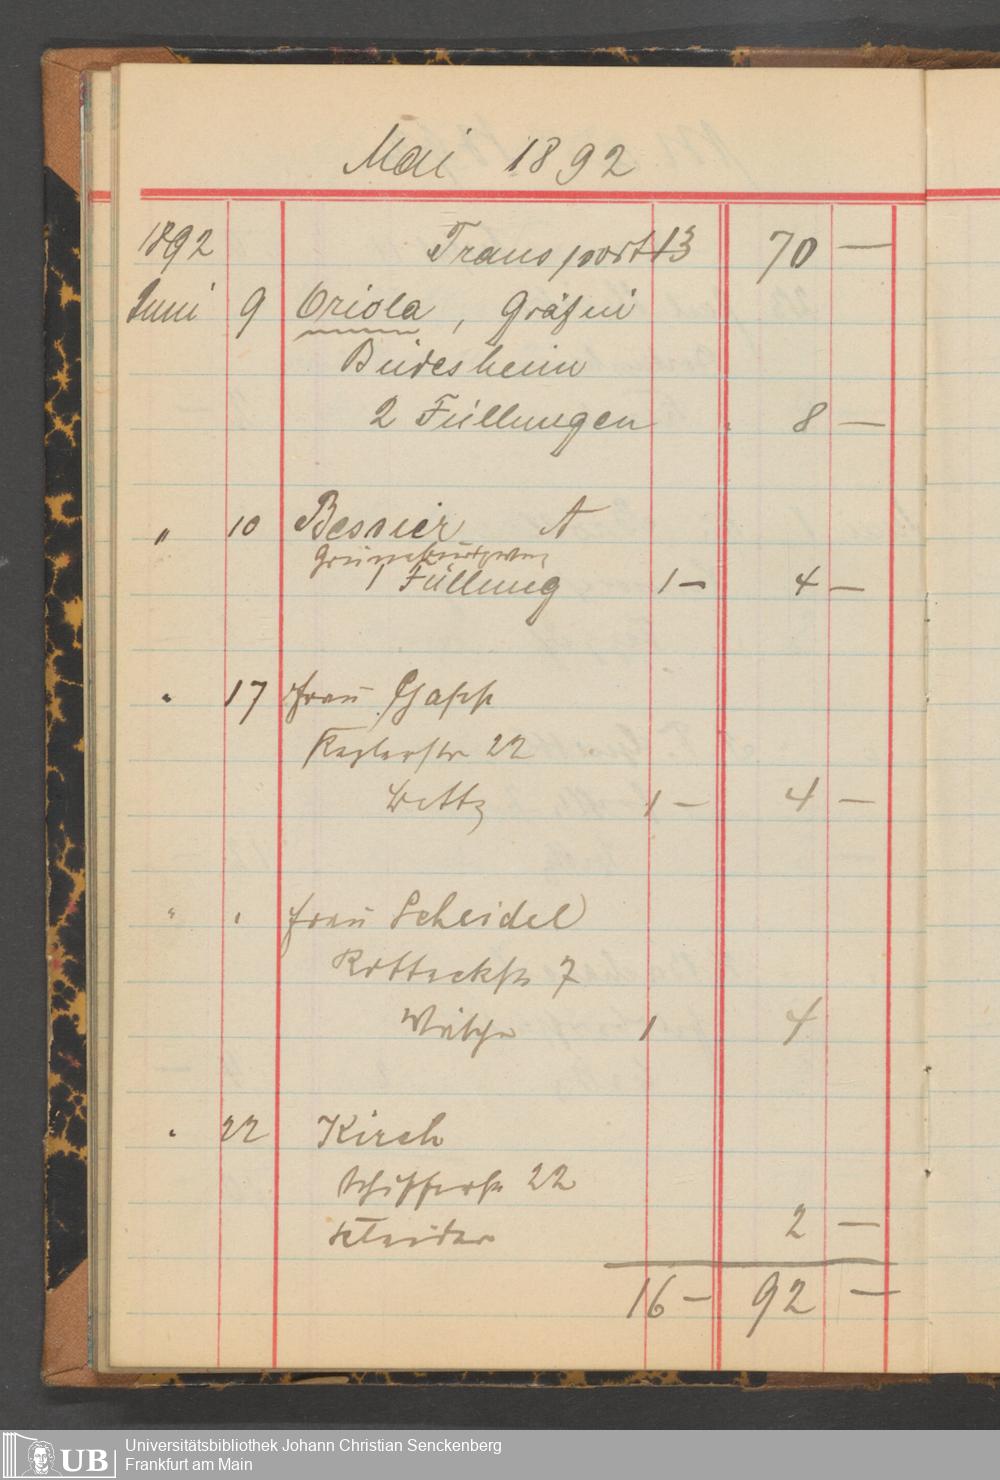 Mai 1892
1892 Transport 13 70 —
Juni 9 Oriola, Gräfin
Büdesheim
2 Füllungen 8 —
" 10 Besnier A
Grüneburgweg
1 Füllung 1 — 4 —
" 17 Frau
22
1 — 4 —
" " Frau Scheidel
Rotteckstr 7
Wäsche 1 4
" 22 Kirch
Schifferstr 22
Kleider 2 —
16 — 92 —
UB
Universitätsbibliothek Johann Christian Senckenberg
Frankfurt am Main